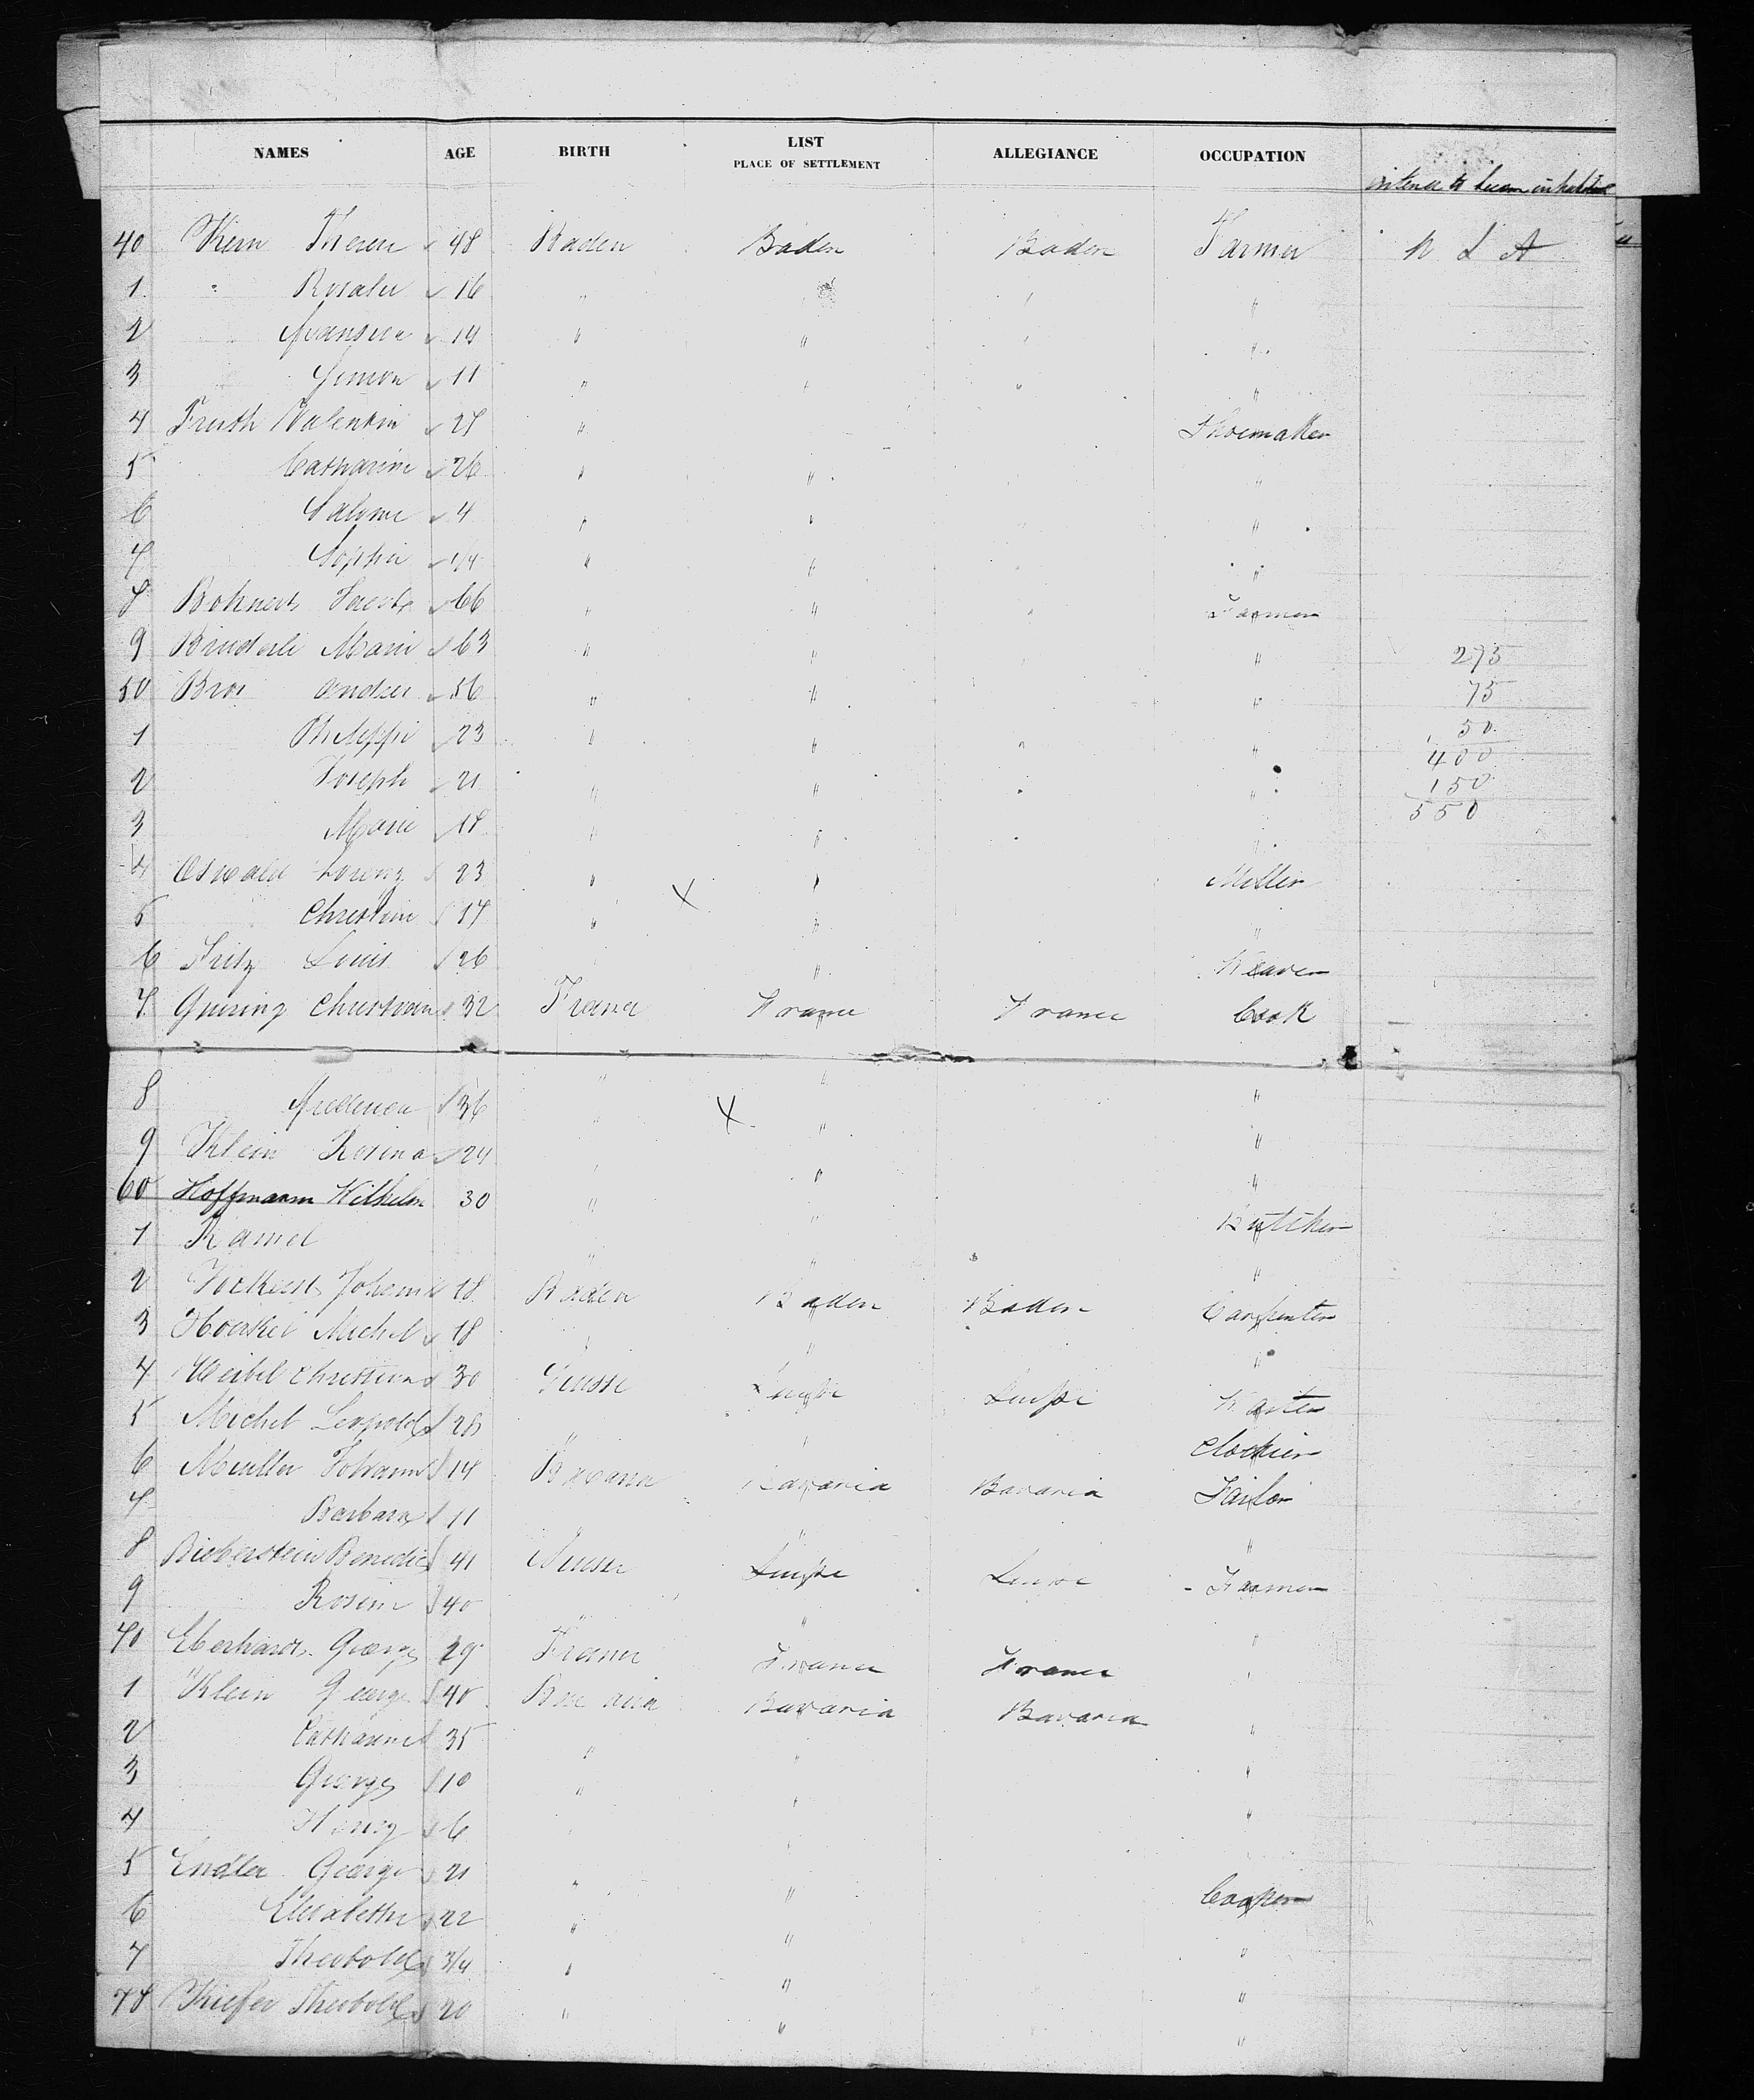 NAMES AGE BIRTH LIST PLACE OF SETTLEMENT ALLEGIANCE OCCUPATION
intend to
40 Kern Therese 48 Baden Baden Baden Farmer N S A
1 " Rosalie 16 " " "
2 14 " " " "
3 Simon 11 " " " "
4 Fruth Valentin 27 " Shoemaker
5 Catharine 26 " " "
6 Salome 4 " " "
7 Sophie 1/4 " " "
8 Bohnert 66 " " Farmer
9 Marie 63 " " " 275
50 Bros Andres 56 " " " 75
1 Philippi 23 " " " " 50
400
2 Joseph 21 " " " 150
550
3 Marie 18 " " "
4 Oswald Lorenz 23 " " Miller
5 Christine 17 " X " "
6 Fritz Louis 26 " Weaver
7 Christian 32 France France France Cook
8 Frederica 36 " " "
9 Klein Rosina 24 " X " "
60 Hoffmann Wilhelm 30 " " "
1 Kamel " " Butcher
2 Johann 18 Baden Baden Baden Carpenter
3 Michel 18 " " "
4 Weibel Christian 30 Suisse Suisse Suisse
5 Michel Leopold 28 " "
6 Muller Johann 14 Bavaria Bavaria Bavaria Tailor
7 Barbara 11 " " "
8 Bieberstein Benedict 41 Suisse Suisse Suisse Farmer
9 Rosine 40 " " "
70 Eberhardt George 29 France France France "
1 Klein George 40 Bavaria Bavaria Bavaria
2 Catharine 35 " " "
3 George 10 " " "
4 Henry 6 "
5 Endler George 21 " " Cooper
6 Elisabethe 22 " " "
7 Theobold 3/4 " " "
78 Kiefer Theobold 20 " " "